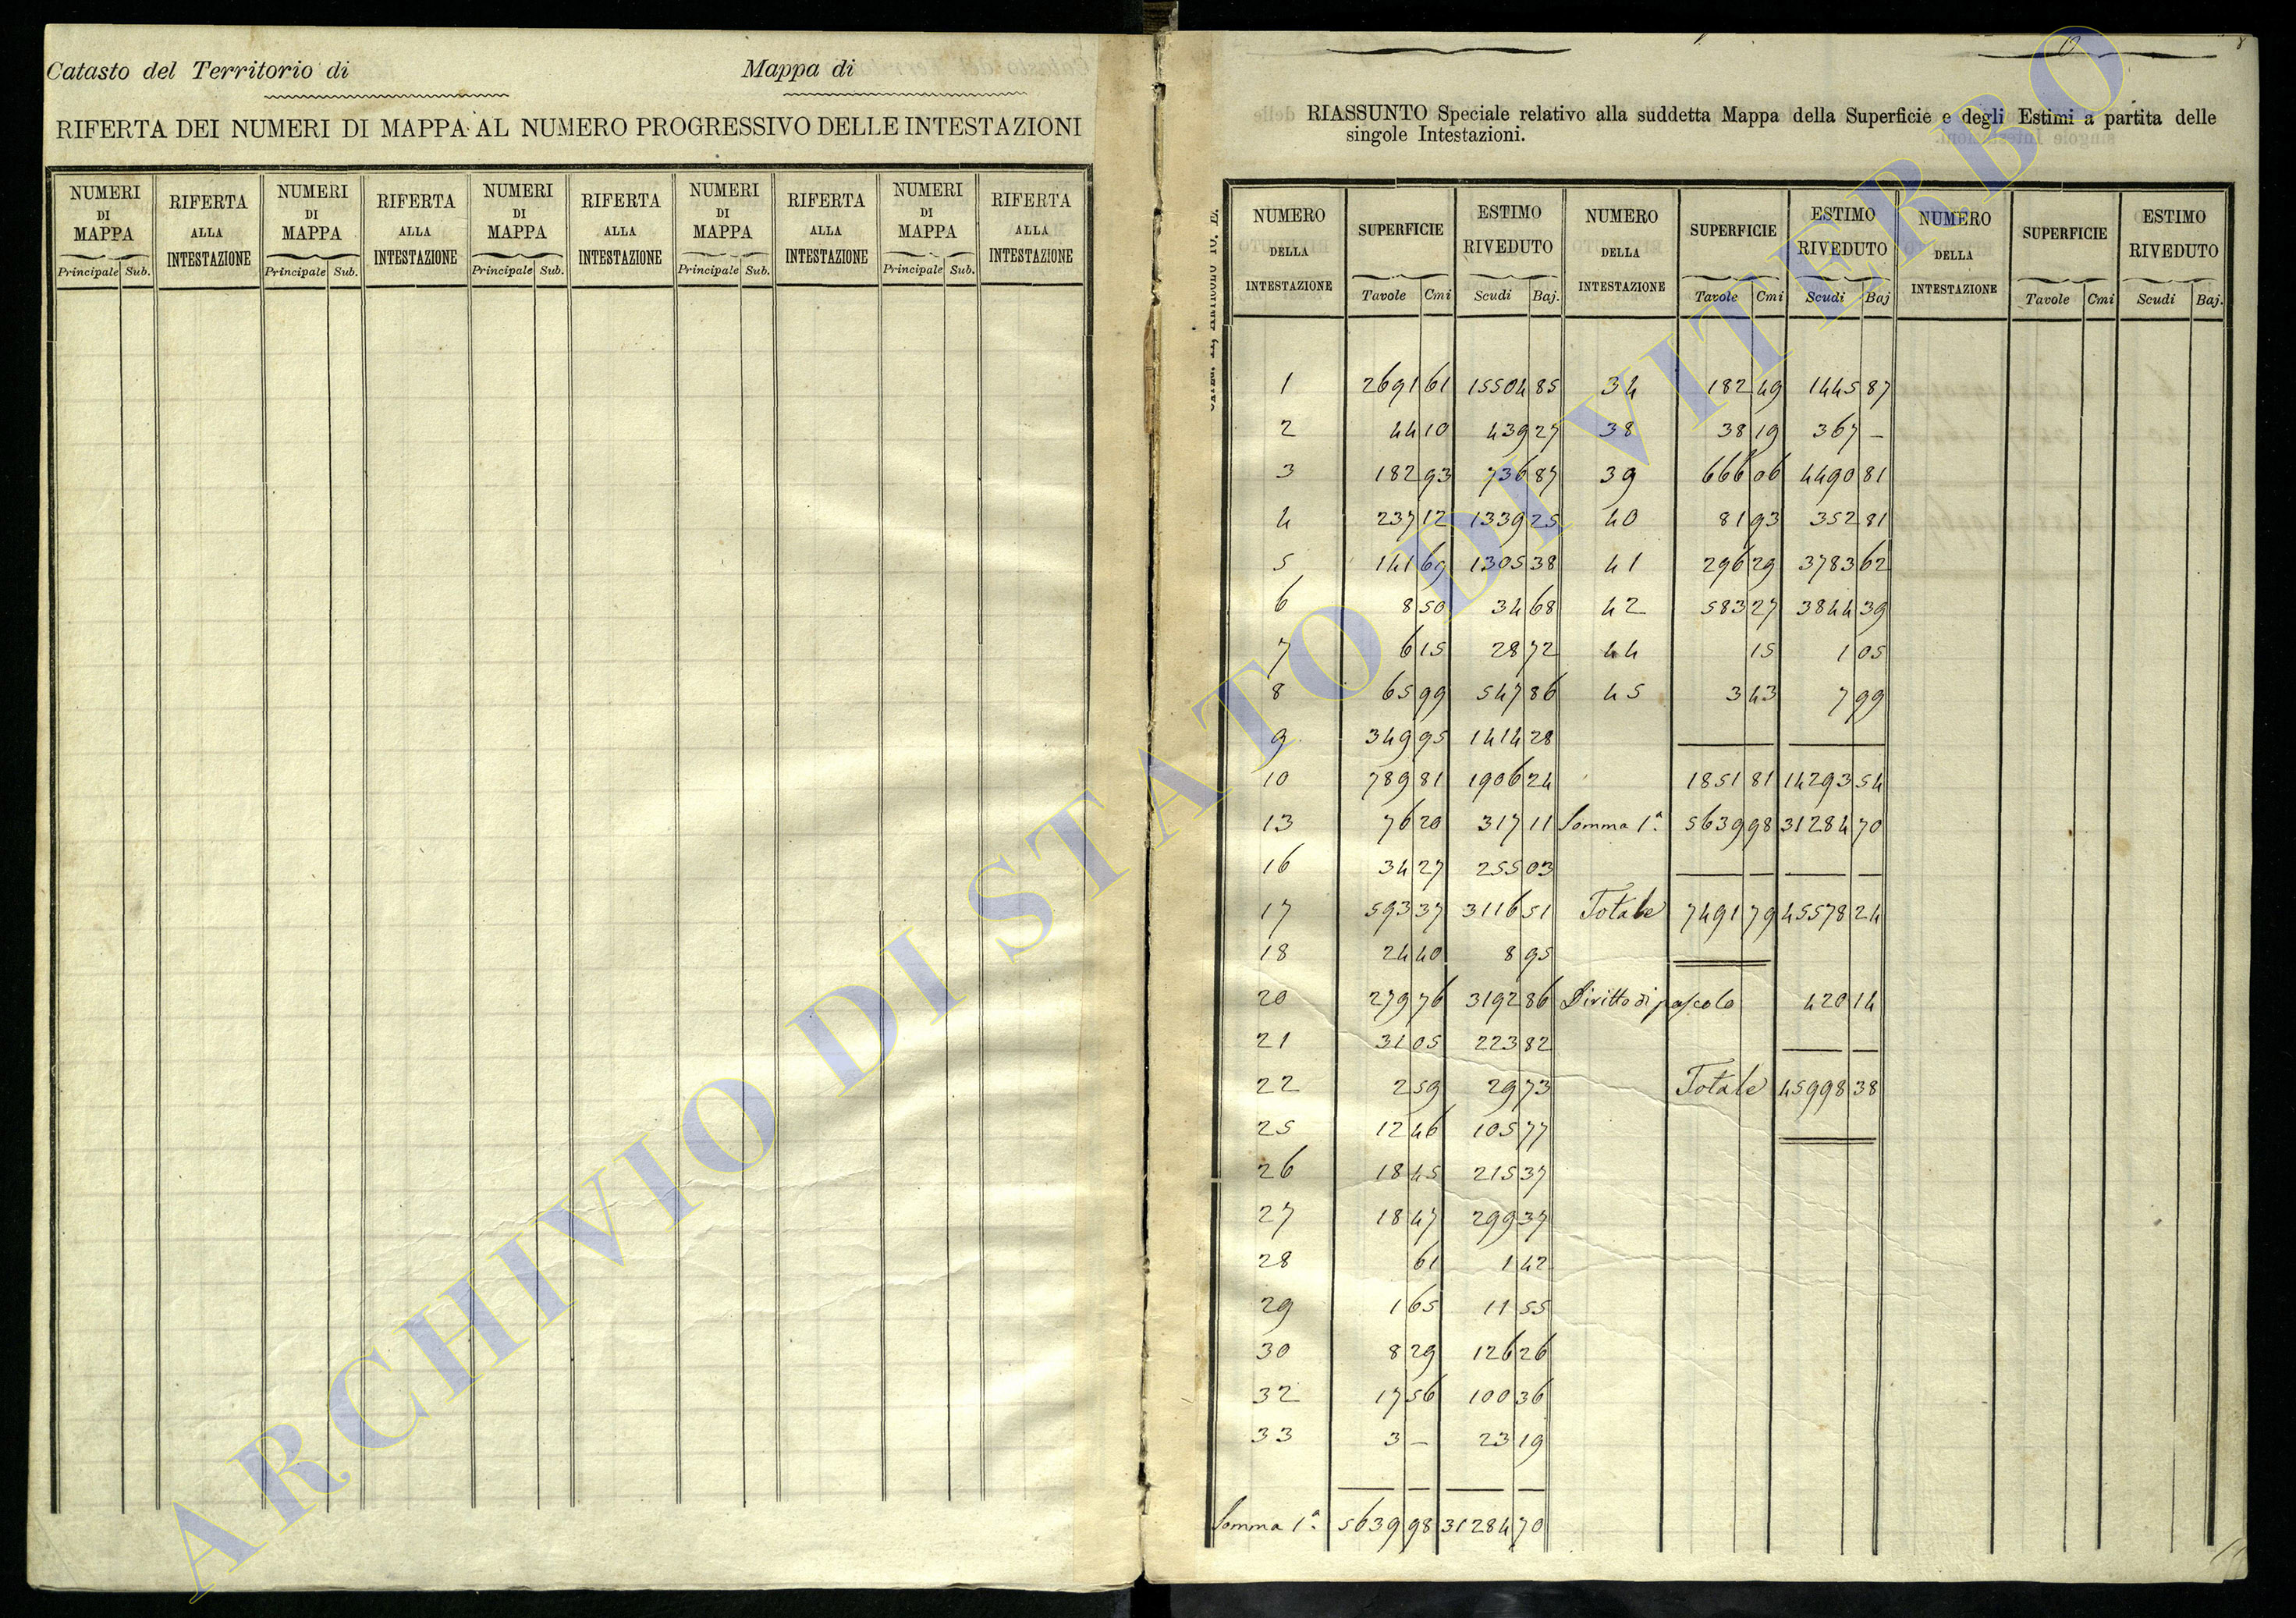 Catasto del Territorio di
Mappa di
RIFERTA DEI NUMERI DI MAPPA AL NUMERO PROGRESSIVO DELLE INTESTAZIONI
NUMERI DI MAPPA RIFERTA ALLA INTESTAZIONE NUMERI DI MAPPA RIFERTA ALLA INTESTAZIONE NUMERI DI MAPPA RIFERTA ALLA INTESTAZIONE NUMERI DI MAPPA RIFERTA ALLA INTESTAZIONE NUMERI DI MAPPA RIFERTA ALLA INTESTAZIONE
Principale Sub. Principale Sub. Principale Sub. Principale Sub. Principale Sub.
RIASSUNTO Speciale relativo alla suddetta Mappa della Superficie e degli Estimi a partita delle
singole Intestazioni.
NUMERO DELLA INTESTAZIONE SUPERFICIE ESTIMO RIVEDUTO NUMERO DELLA INTESTAZIONE SUPERFICIE ESTIMO RIVEDUTO NUMERO DELLA INTESTAZIONE SUPERFICIE ESTIMO RIVEDUTO
Tavole Cmi Scudi Baj. Tavole Cmi Scudi Baj Tavole Cmi Scudi Baj.
1 2691 61 15504 85 34 182 49 1445 87
2 44 10 439 27 38 38 19 367 –
3 182 93 736 87 39 666 06 4490 81
4 237 12 1339 25 40 81 93 352 81
5 141 69 1305 38 41 296 29 3783 62
6 8 50 34 68 42 583 27 3844 39
7 6 15 28 72 44 15 1 05
8 65 99 547 86 45 3 43 7 99
9 349 95 1414 28
10 789 81 1906 24 1851 81 14293 54
13 76 20 317 11 Somma 1ª. 5639 98 31284 70
16 34 27 255 03
17 593 37 3116 51 Totale 7491 79 45578 24
18 24 40 8 95
20 279 76 3192 86 Diritto di pascolo 420 14
21 31 05 223 82
22 2 59 29 73 Totale 45998 38
25 12 46 105 77
26 18 45 215 37
27 18 47 299 37
28 61 1 42
29 1 65 11 55
30 8 29 126 26
32 17 56 100 36
33 3 – 23 19
Somma 1ª. 5639 98 31284 70
ARCHIVIO DI STATO DI VITERBO